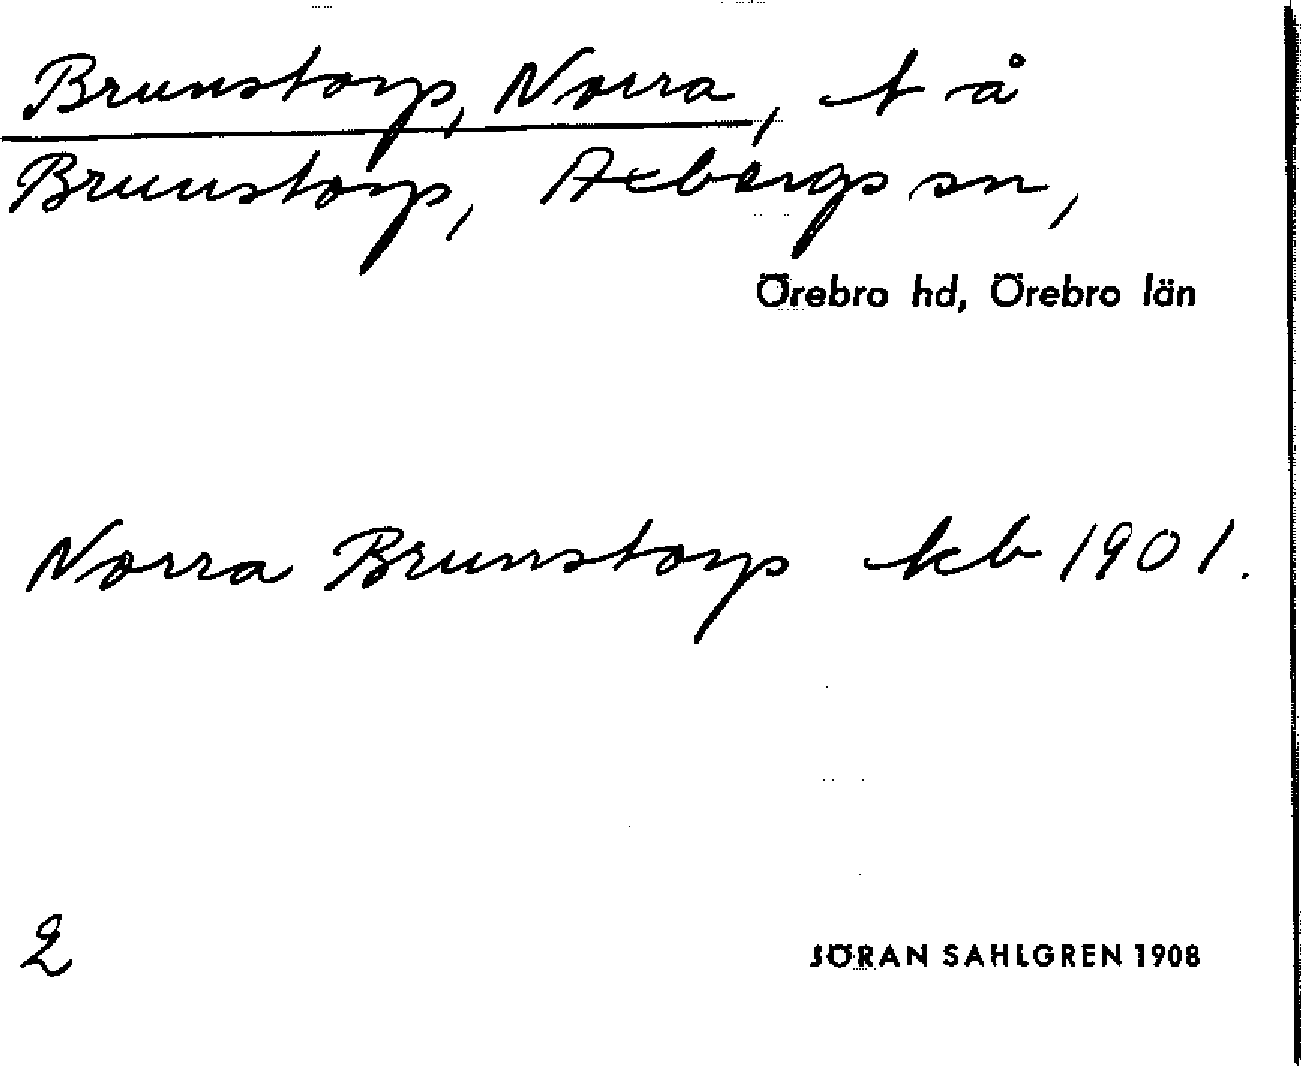 Brunstorp, Norra, t å
Brunstorp, Axbergs sn,
Örebro hd, Örebro län
Norra Brunstorp kb 1901.
2
JÖRAN SAHLGREN 1908